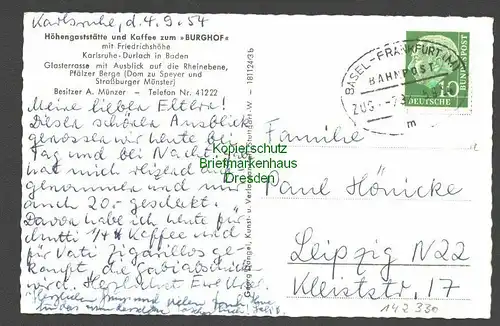 Karlsruhe, d. 4.9.54
Höhengaststätte und Kaffee zum »BURGHOF«
mit Friedrichshöhe
Karlsruhe-Durlach in Baden
Glasterrasse mit Ausblick auf die Rheinebene,
Pfälzer Berge (Dom zu Speyer und
Straßburger Münster)
Besitzer A. Münzer – Telefon Nr. 41222
Meine lieben Eltern!
Diesen schönen Ausblick
genossen wir heute bei
Tag und bei Nacht.
hat mich
genommen und mir
auch 20.- geschenkt.
Davon habe ich heute für
Mutti 1/4 Kaffee und
für Vati Zigarillos ge-
kauft, die
wird. Herzlichst Eure
Herzlichen Gruß und vielen Dank
für das
BASEL-FRANKFURT (M)
BAHNPOST
ZUG
m
10
DEUTSCHE
BUNDESPOST
Familie
Paul Hönicke
Leipzig N22
Kleiststr. 17
142 330
Kopierschutz
Briefmarkenhaus
Dresden